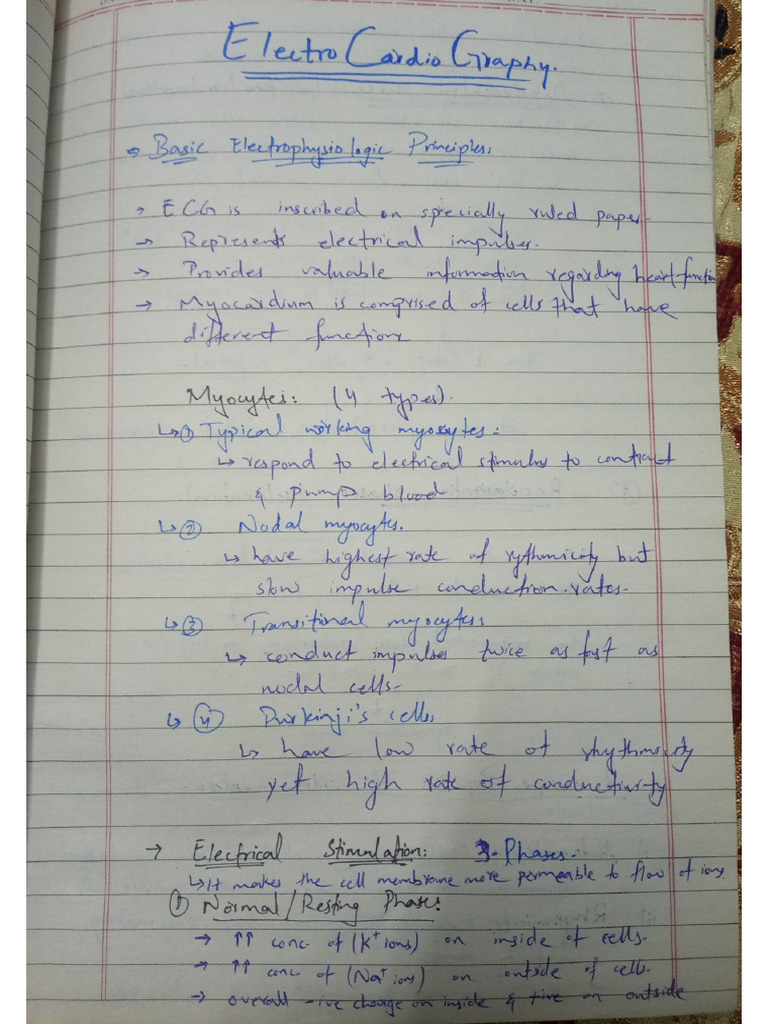 Electro Cardio Graphy.
→ Basic Electrophysiologic Principles.
→ ECG is inscribed on specially ruled paper
→ Represents electrical impulses.
→ Provides valuable information regarding heart function
→ Myocardium is comprised of cells that have
different function
Myocytes: (4 types).
↳ ① Typical working myocytes:
↳ respond to electrical stimulus to contract
& pump blood
↳ ② Nodal myocytes.
↳ have highest rate of rythmicity but
slow impulse conduction rates.
↳ ③ Transitional myocytes:
↳ conduct impulses twice as fast as
nodal cells.
↳ ④ Purkinji's cells,
↳ have low rate of rhythmicity
yet high rate of conductivity
→ Electrical Stimulation: 3-Phases.
↳ It makes the cell membrane more permeable to flow of ions
① Normal/Resting Phase:
→ ↑↑ conc of (K⁺ ions) on inside of cells.
→ ↑↑ conc of (Na⁺ ions) on outside of cells.
→ overall -ive charge on inside & +ive on outside